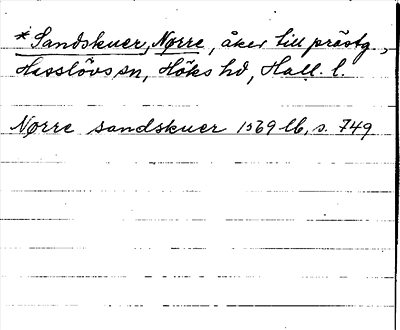 * Sandskuer, Nørre, åker till prästg.,
Hasslövs sn, Höks hd, Hall. l.
Nørre sandskuer 1569 lb, s. 749